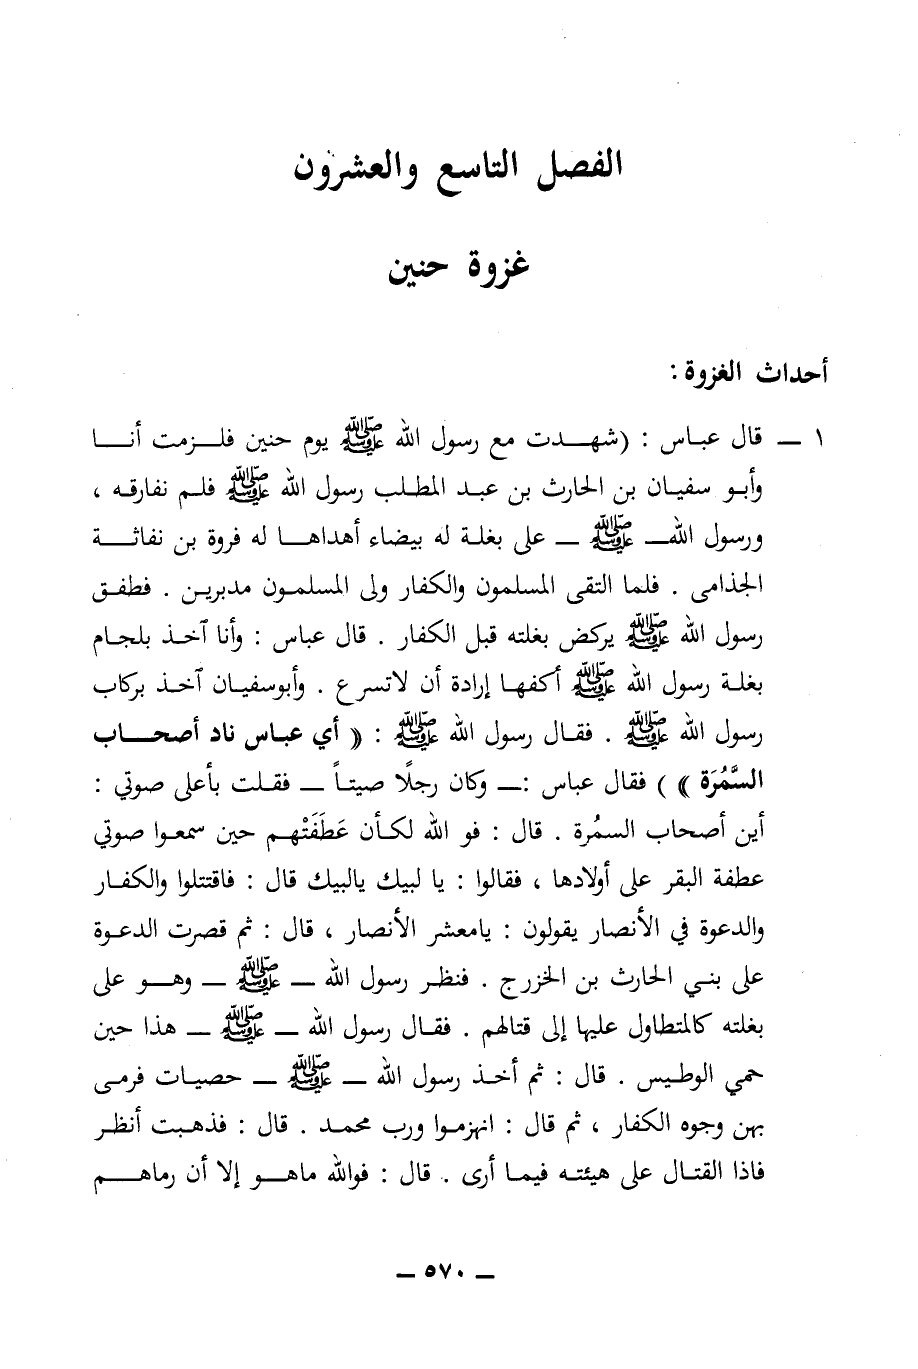 الفصل التاسع والعشرون
غزوة حنين
أحداث الغزوة :
١ ــ قال عباس : (شهدت مع رسول الله ﷺ يوم حنين فلزمت أنا
وأبو سفيان بن الحارث بن عبد المطلب رسول الله ﷺ فلم نفارقه ،
ورسول الله ــ ﷺ ــ على بغلة له بيضاء أهداها له فروة بن نفاثة
الجذامى . فلما التقى المسلمون والكفار ولى المسلمون مدبرين . فطفق
رسول الله ﷺ يركض بغلته قبل الكفار . قال عباس : وأنا آخذ بلجام
بغلة رسول الله ﷺ أكفها إرادة أن لاتسرع . وأبوسفيان آخذ بركاب
رسول الله ﷺ . فقال رسول الله ﷺ : « أي عباس ناد أصحاب
السَّمُرَة » ) فقال عباس :ــ وكان رجلًا صيتاً ــ فقلت بأعلى صوتي :
أين أصحاب السمُرة . قال : فو الله لكأن عَطَفَتْهم حين سمعوا صوتي
عطفة البقر على أولادها ، فقالوا : يا لبيك يالبيك قال : فاقتتلوا والكفار
والدعوة في الأنصار يقولون : يامعشر الأنصار ، قال : ثم قصرت الدعوة
على بني الحارث بن الخزرج . فنظر رسول الله ــ ﷺ ــ وهو على
بغلته كالمتطاول عليها إلى قتالهم . فقال رسول الله ــ ﷺ ــ هذا حين
حمي الوطيس . قال : ثم أخذ رسول الله ــ ﷺ ــ حصيات فرمى
بهن وجوه الكفار ، ثم قال : انهزموا ورب محمد . قال : فذهبت أنظر
فاذا القتال على هيئته فيما أرى . قال : فوالله ماهو إلا أن رماهم
ــ ٥٧٠ ــ